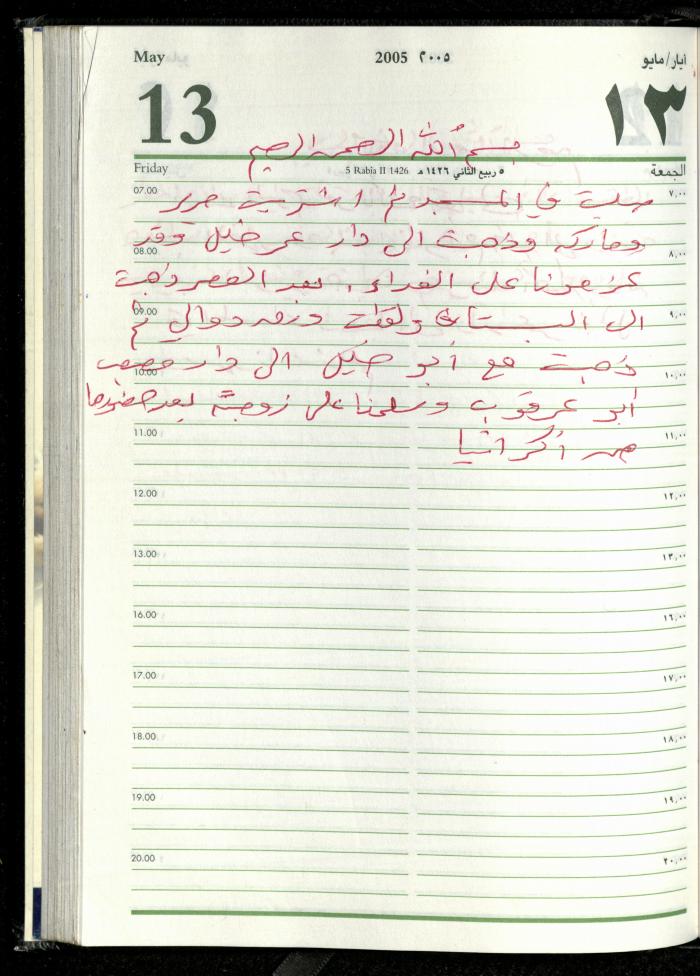 May 2005 ٢٠٠٥ أيار/مايو
13 ١٣
بسم الله الرحمن الرحيم
Friday 5 Rabia II 1426 ٥ ربيع الثاني ١٤٢٦ هـ الجمعة
07.00 ٧,٠٠
صليت في المسجد ثم اشتريت
وذهبت الى دار عمر خليل وقد
08.00 ٨,٠٠
على الغداء. بعد العصر ذهبت
الى البستان دوالي ثم
09.00 ٩,٠٠
ذهبت مع أبو خليل الى دار
10.00 ١٠,٠٠
أبو عرقوب وسلمنا على زوجته بعد حضورها
من أكرانيا
11.00 ١١,٠٠
12.00 ١٢,٠٠
13.00 ١٣,٠٠
16.00 ١٦,٠٠
17.00 ١٧,٠٠
18.00 ١٨,٠٠
19.00 ١٩,٠٠
20.00 ٢٠,٠٠